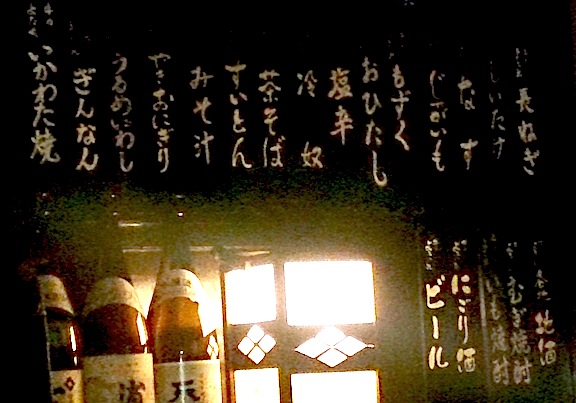 長ねぎ
しいたけ
なす
じゃがいも
もずく
おひたし
塩辛
冷奴
茶そば
すいとん
みそ汁
やきおにぎり
うるめいわし
ぎんなん
いかわた焼
地酒
むぎ焼酎
いも焼酎
にごり酒
ビール